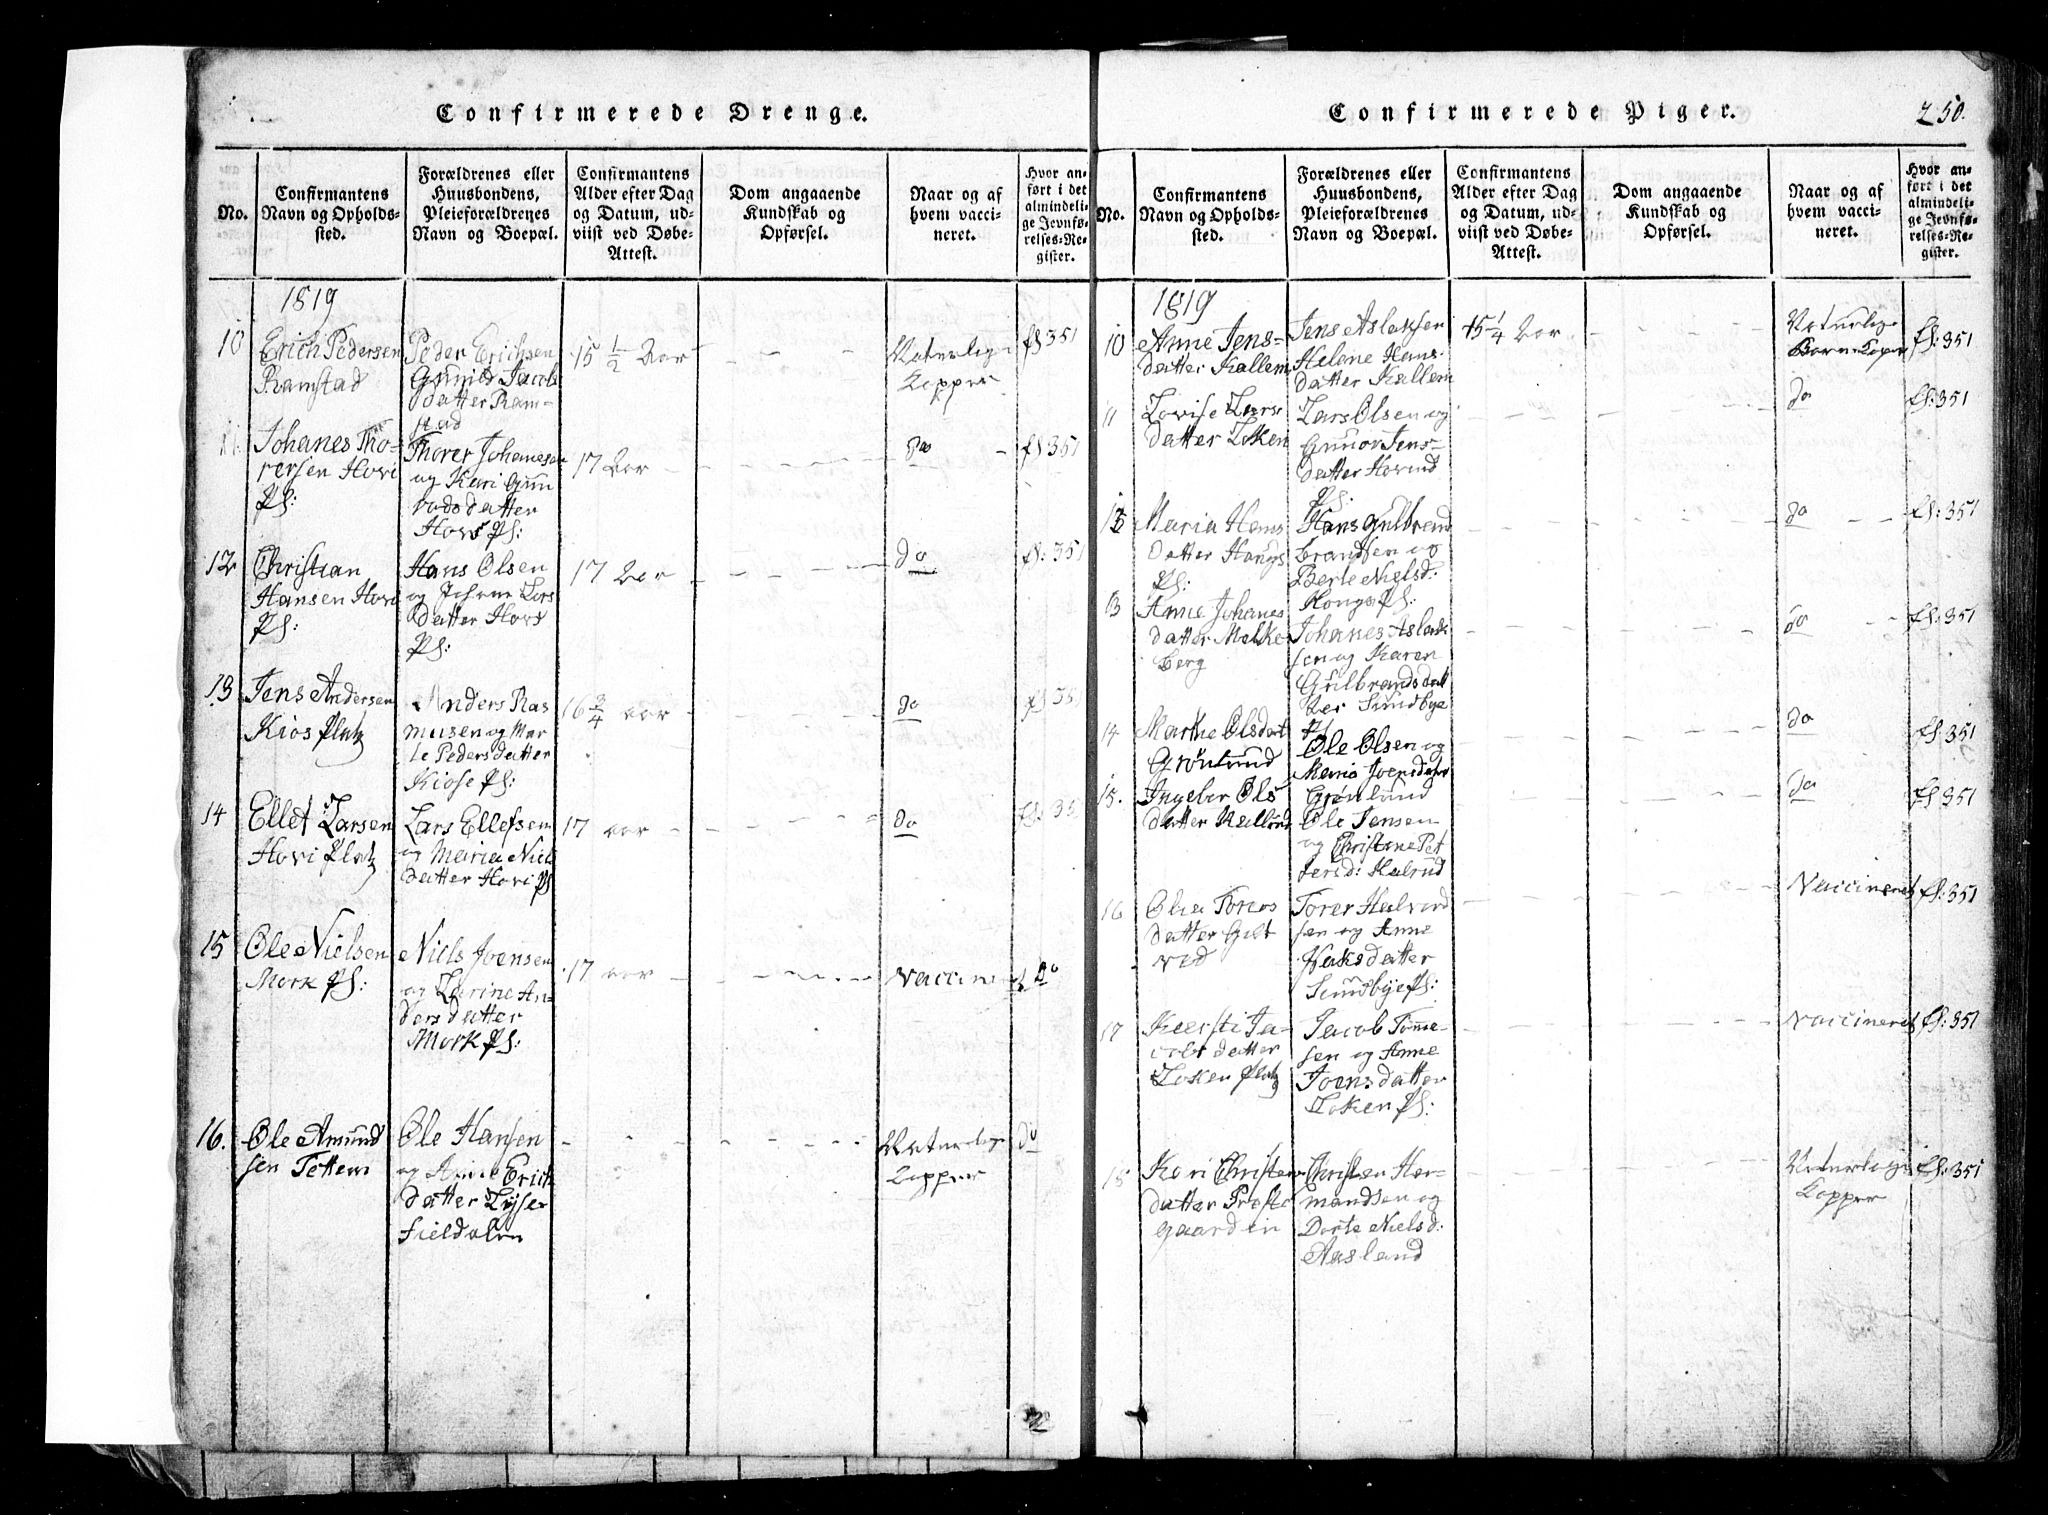 Confirmerede Drenge.
No.
Confirmantens
Navn og Opholds-
sted.
Forældrenes eller
Huusbondens,
Pleieforældrenes
Navn og Boepæl.
Confirmantens
Alder efter Dag
og Datum, ud-
viist ved Døbe-
Attest.
Dom angaaende
Kundskab og
Opførsel.
Naar og af
hvem vacci-
neret.
Hvor an-
ført i det
almindeli-
ge Jevnfø-
relses-Re-
gister.
1819
10
Erich Pedersen
Ramstad
Peder Erichsen
Gunild Jacobs
datter Ram-
stad
15 1/2 Aar
Naturlige
Kopper
fl 351
11.
Johanes Tho-
rersen Hovi
Pl:
Thorer Johanesen
og Kari Gun
datter
Hovi Pl:
17 Aar
do
fl 351
12
Christian
Hansen Hovi
Pl:
Hans Olsen
og Johane Lars
datter Hovi
Pl:
17 Aar
do
fl: 351
13
Jens Andersen
Kios Platz
Anders Ras
musen og Mar
te Pedersdatter
Kiose Pl:
16 3/4 aar
do
fl 351
14
Ellef Larsen
Hovi Platz
Lars Ellefsen
og Maria Niels
datter Hovi Pl
17 aar
do
fl: 351
15
Ole Nielsen
Mork Pl:
Niels Joensen
og Karine An-
dersdatter
Mork Pl:
17 aar
Vaccineret
do
16.
Ole Amund
sen Tettem
Ole Hansen
og Anne Erichs
datter Lyser
fieldalen
Naturlige
Kopper
do
2
Confirmerede Piger.
250.
No.
Confirmantens
Navn og Opholds-
sted.
Forældrenes eller
Huusbondens,
Pleieforældrenes
Navn og Boepæl.
Confirmantens
Alder efter Dag
og Datum, ud-
viist ved Døbe-
Attest.
Dom angaaende
Kundskab og
Opførsel.
Naar og af
hvem vacci-
neret.
Hvor an-
ført i det
almindeli-
ge Jevnfø-
relses-Re-
gister.
1819
10
Anne Jens-
datter Kallem
Jens Aslaksen
Helene Hans-
datter Kallem
15 1/4 Aar
Naturlige
Barnekoper
fl: 351
11
Lovise Lars
datter Loken
Lars Olsen og
Gunor Jens-
datter Hovind
Pl:
do
fl: 351
Maria Hans
datter Hongs
Pl:
Hans Gulbrand
brandsen og
Berte Nielsd:
Hongs Pl:
do
fl: 351
13
Anne Johanes
datter Melke
berg
Johanes Aslak
sen og Karen
Gulbrandsdat
ter Sundbye
do
fl: 351
14
Marthe Olsdat
Grönlund
Ole Olsen og
Maria Joensdatter
Grönlund
do
fl. 351
15.
Ingeber Ols
datter Kallrud
Ole Jensen
og Christine Pet
tersd: Kalrud
do
fl 351
16
datter
Torer Halvord
sen og Anne
datter
Sundbye Pl:
Vaccineret
fl: 351
17
Kiersti Ja-
cobsdatter
Loken Platz
Jacob Tomme-
sen og Anne
Joensdatter
Loken Pl:
Vaccineret
fl: 351
18
Kari Christens
datter Preste
gaarden
Christen Her-
mandsen og
Dorte Nielsd:
Aasland
Naturlige
Kopper
fl: 351